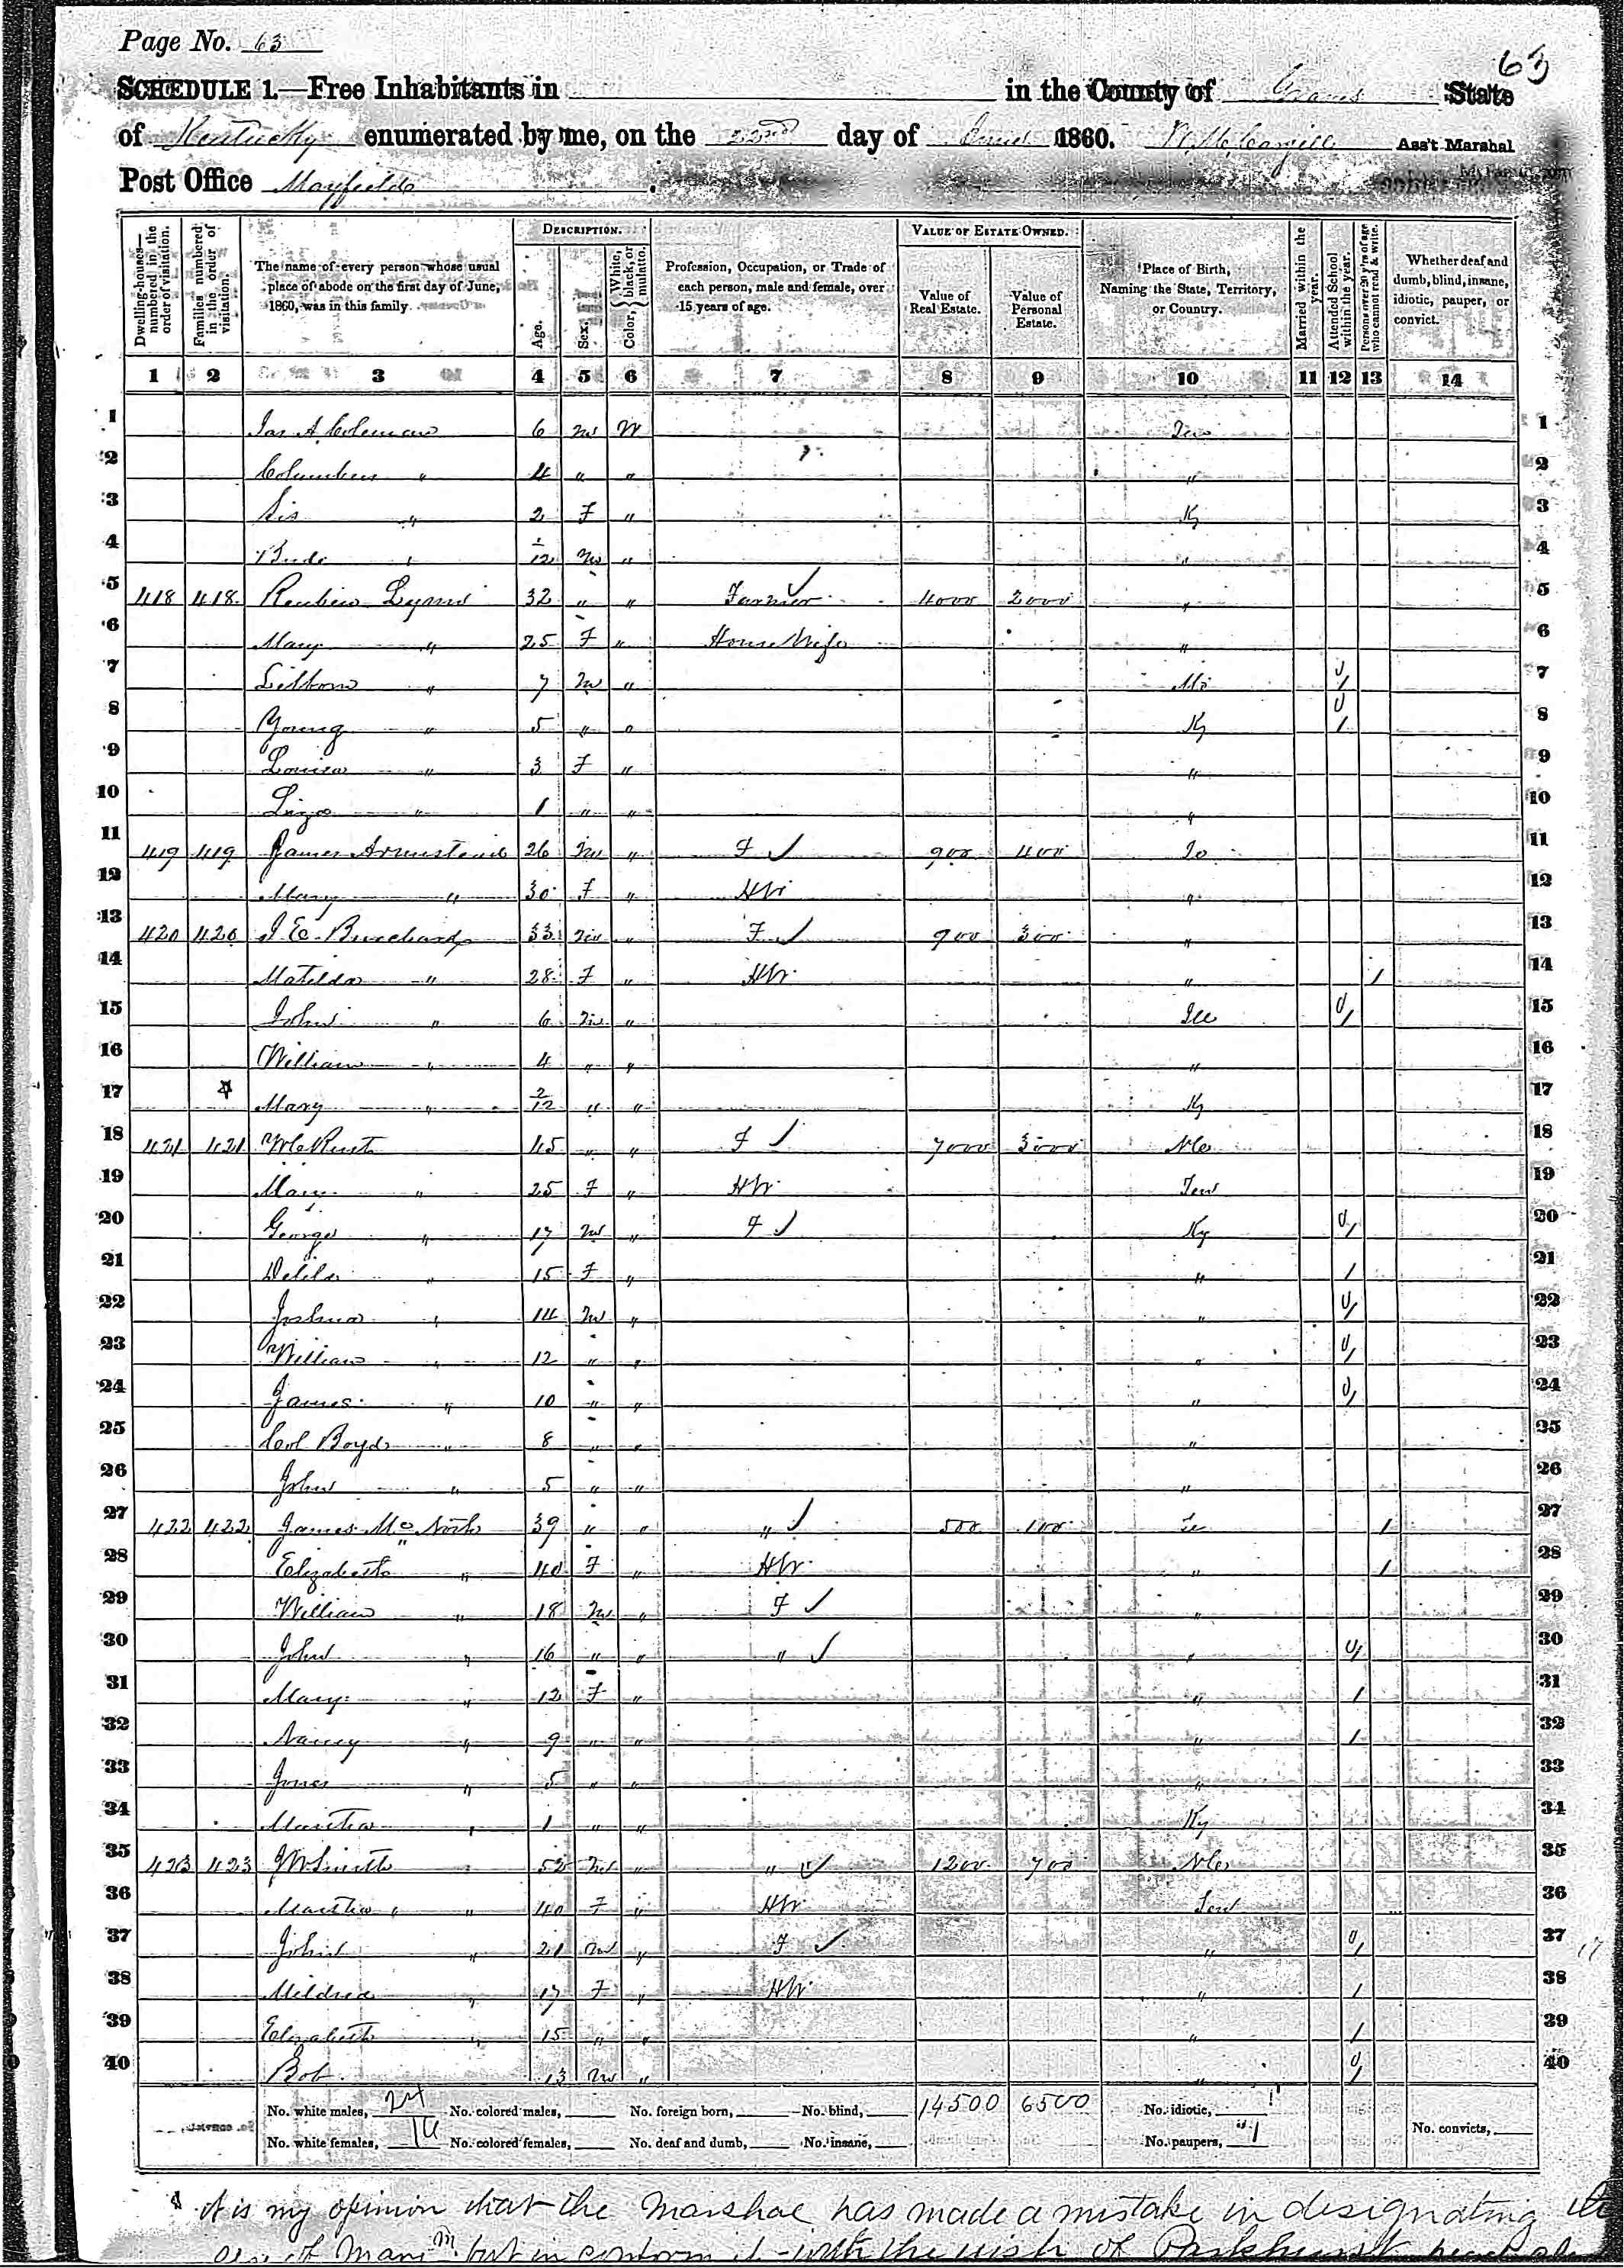 Page No. 63
63
SCHEDULE 1.—Free Inhabitants in in the County of Graves State
of Kentucky enumerated by me, on the 22nd day of June 1860. Ass't Marshal
Post Office Mayfield
Dwelling-houses—numbered in the order of visitation.
Families numbered in the order of visitation.
The name of every person whose usual place of abode on the first day of June, 1860, was in this family.
DESCRIPTION.
Age.
Sex.
Color, { White, black, or mulatto.
Profession, Occupation, or Trade of each person, male and female, over 15 years of age.
VALUE OF ESTATE OWNED.
Value of Real Estate.
Value of Personal Estate.
Place of Birth, Naming the State, Territory, or Country.
Married within the year.
Attended School within the year.
Persons over 20 y'rs of age who cannot read & write.
Whether deaf and dumb, blind, insane, idiotic, pauper, or convict.
1 2 3 4 5 6 7 8 9 10 11 12 13 14
1 Jas A Coleman 6 m W Ten 1
2 Columbus " 4 " " " 2
3 Sis " 2 F " Ky 3
4 " 1/12 m " " 4
5 418 418 Reuben Lyons 32 " " Farmer ✓ 4000 2000 " 5
6 Mary " 25 F " House Wife " 6
7 " 7 m " Mo / 7
8 Young " 5 " " Ky / 8
9 Louisa " 3 F " " 9
10 " 1 " " " 10
11 419 419 James Armstead 26 m " F ✓ 900 400 11
12 Mary " 30 F " HW " 12
13 420 420 33 m " F ✓ 900 300 " 13
14 Matilda " 28 F " HW " / 14
15 John " 6 m " Ill / 15
16 William " 4 " " " 16
17 Mary " 2/12 " " Ky 17
18 421 421 45 " " F ✓ 7000 3000 NC 18
19 Mary " 25 F " HW Ten 19
20 George " 17 m " F ✓ Ky / 20
21 " 15 F " " / 21
22 Joshua " 14 m " " / 22
23 William " 12 " " " / 23
24 James " 10 " " " / 24
25 Col Boyd " 8 " " " 25
26 John " 5 " " " 26
27 422 422 James 39 " " " ✓ 500 100 / 27
28 Elizabeth " 40 F " HW " / 28
29 William " 18 m " F ✓ " 29
30 John " 16 " " " ✓ " / 30
31 Mary " 12 F " " / 31
32 Nancy " 9 " " " / 32
33 " 5 " " " 33
34 Martha " 1 " " Ky 34
35 423 423 J W Smith 52 m " " ✓ 1200 700 NC 35
36 Martha " 40 F " HW Ten 36
37 John " 21 m " F ✓ " / 37
38 Mildred " 17 F " HW " / 38
39 Elizabeth " 15 " " " / 39
40 Bob 13 m " " / 40
No. white males, 24 No. colored males, No. foreign born, No. blind, 14500 6500 No. idiotic,
No. white females, 16 No. colored females, No. deaf and dumb, No. insane, No. paupers, No. convicts,
It is my opinion that the Marshal has made a mistake in designating
of but in conform with the wish of